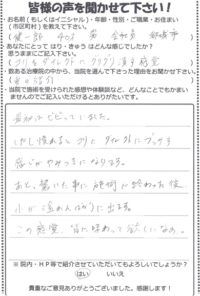 皆様の声を聞かせて下さい!
お名前(もしくはイニシャル)・年齢・性別・ご職業・お住まい
(市区町村)を教えて下さい。
あなたにとって はり・きゅう はどんな感じでしたか?
思うままにご記入下さい。
コリをダイレクトに
数ある治療院の中から、当院を選んで下さった理由をお聞かせ下さい。
当院で施術を受けられた感想や体験談など、どんなことでもかま
いませんのでご記入いただけるとありがたいです。
最初はビビッていました。
しかし慣れるとコリにダイレクトにブッサす
感じがやみつきになります。
あと、驚いた事に施術に終わった後
小が
この感覚、皆に味わって欲しいなぁ。
※院内・HP等で紹介させていただいてもよろしいでしょうか?
はい いいえ
貴重なご意見ありがとうございました。感謝します!